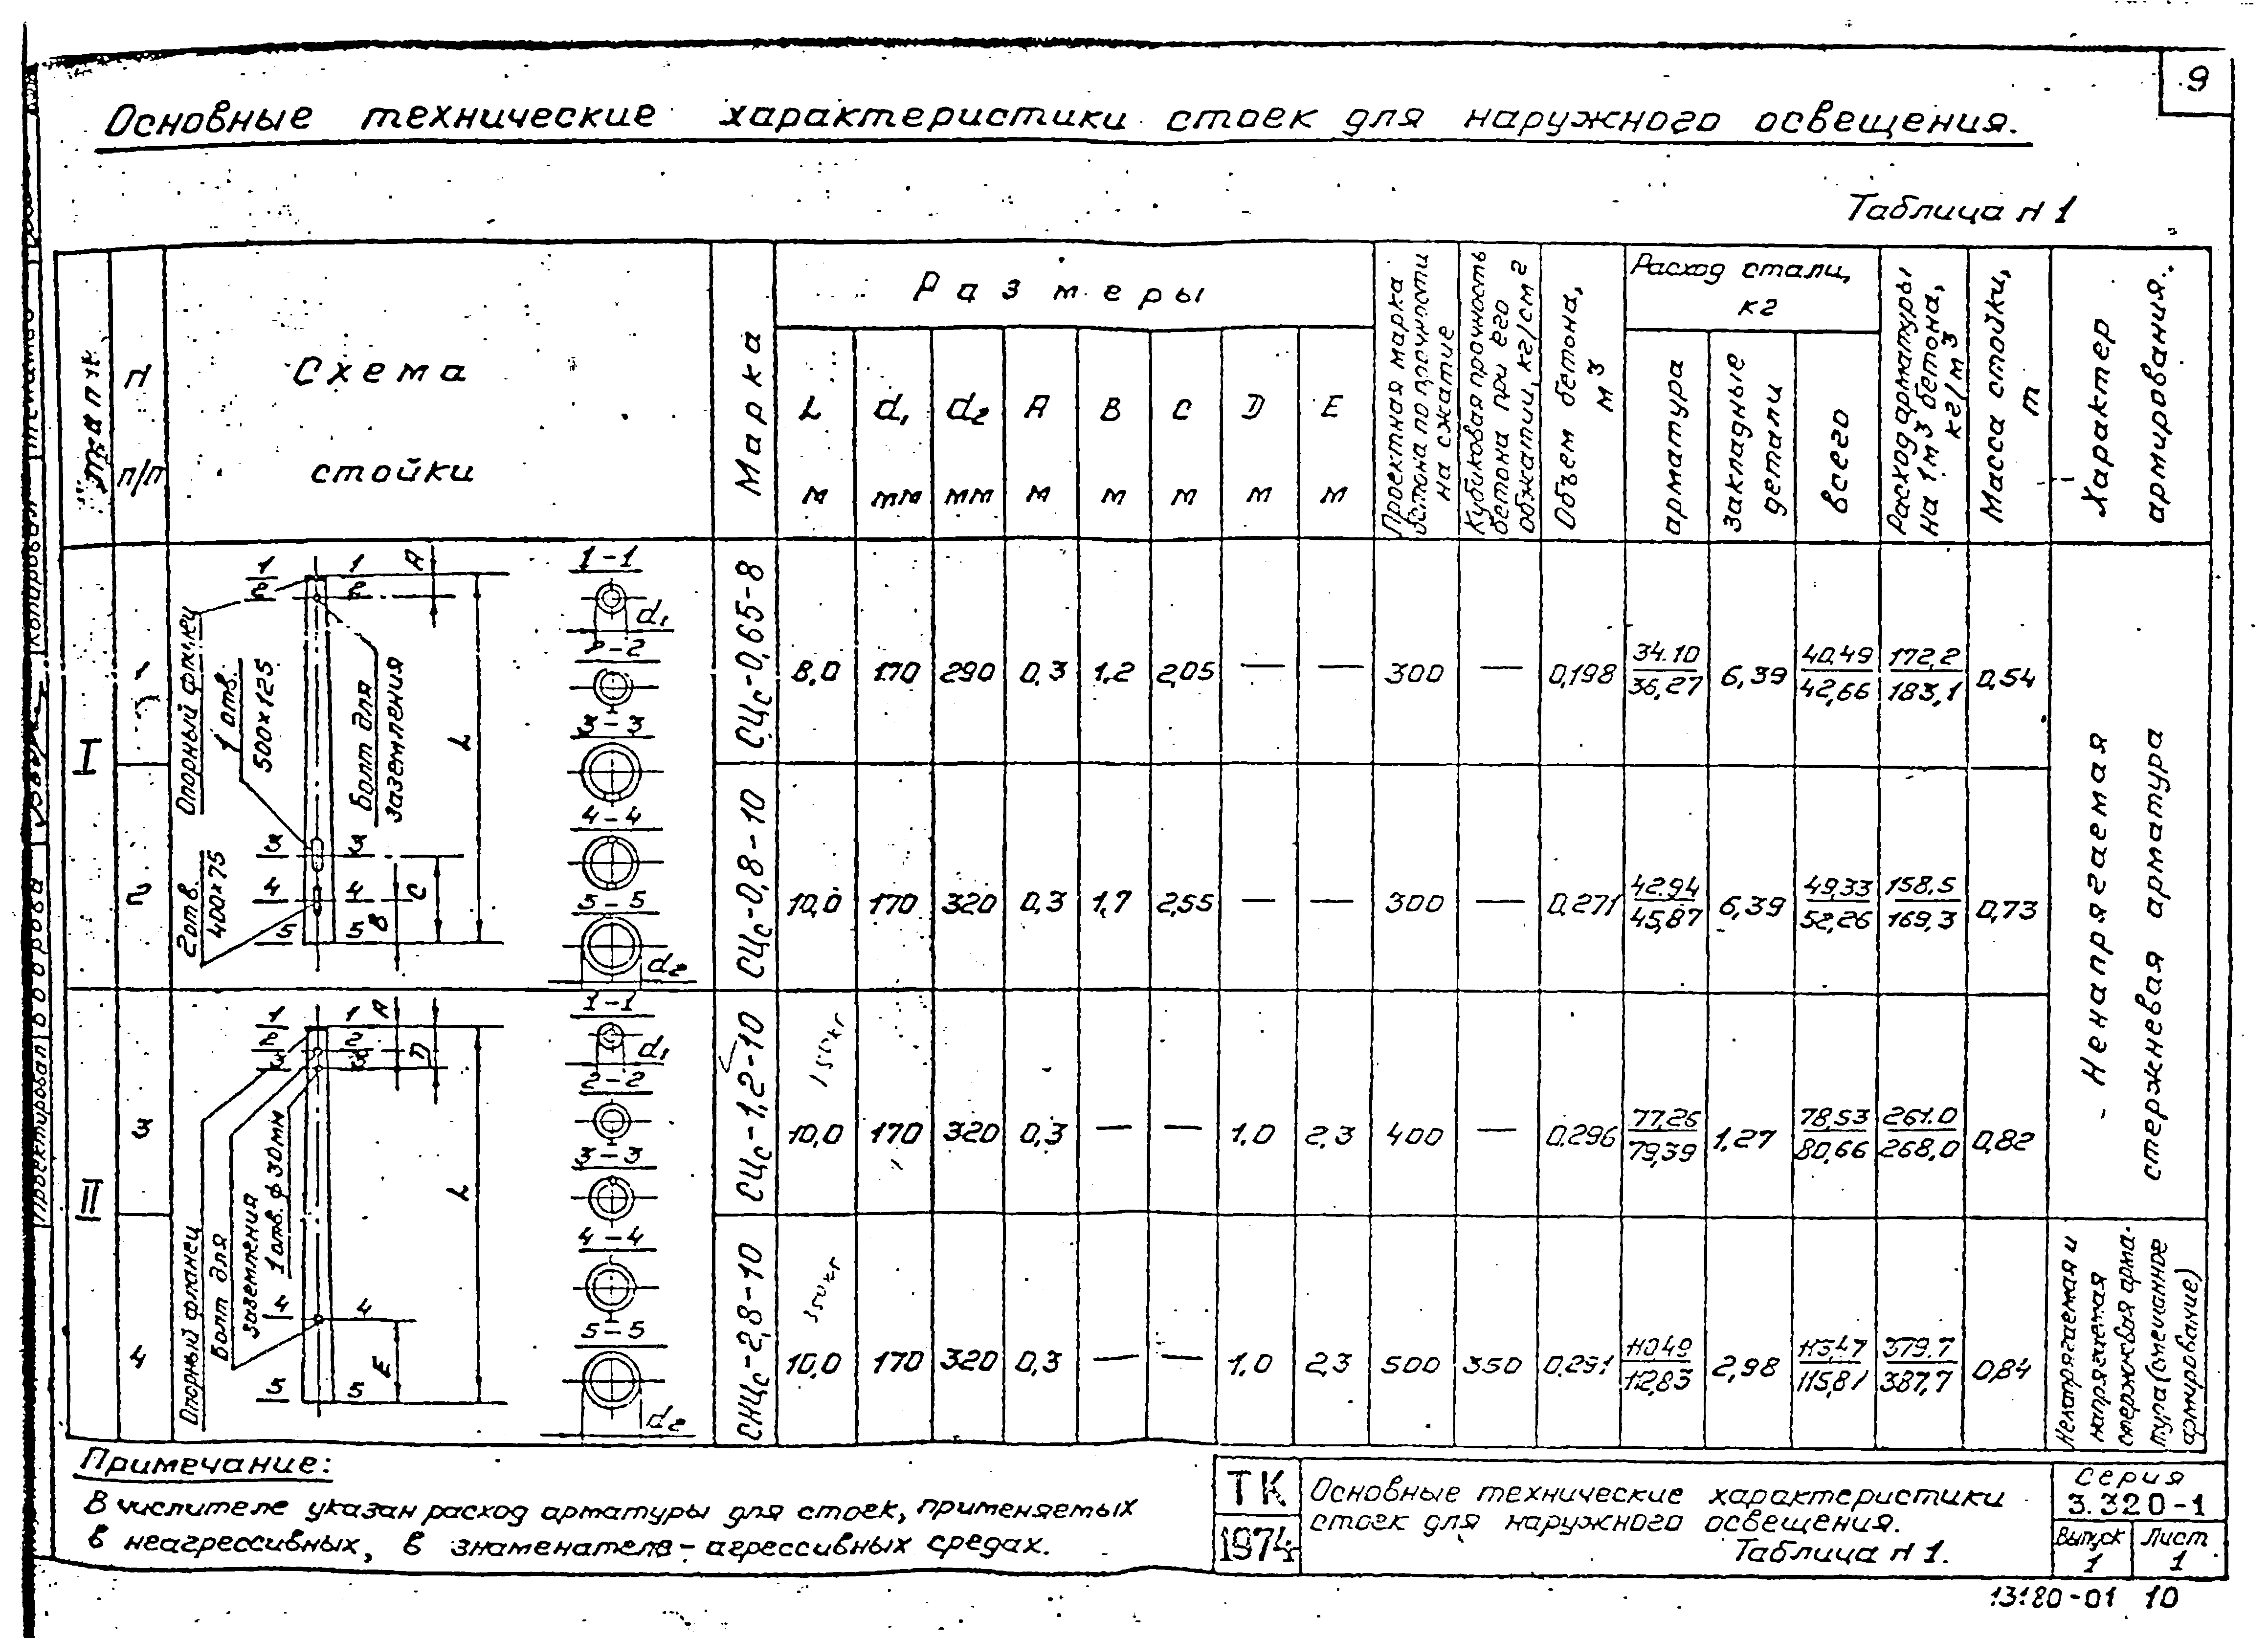 9
Основные технические характеристики стоек для наружного освещения.
Таблица N 1
N п/п
Схема стойки
Марка
Размеры
L м
d₁ мм
d₂ мм
A м
B м
C м
D м
E м
Проектная марка бетона по прочности на сжатие
Кубиковая прочность бетона при его обжатии, кг/см2
Объем бетона, м3
Расход стали, кг
арматура
Закладные детали
всего
Расход арматуры на 1м3 бетона, кг/м3
Масса стойки, т
Характер армирования.
I
1 СЦс-0,65-8 8,0 170 290 0,3 1,2 2,05 — — 300 — 0,198 34.10/36,27 6,39 40,49/42,66 172,2/183,1 0,54
2 СЦс-0,8-10 10,0 170 320 0,3 1,7 2,55 — — 300 — 0,271 42.94/45,87 6,39 49,33/52,26 158.5/169,3 0,73
II
3 СЦс-1,2-10 10,0 170 320 0,3 — — 1,0 2,3 400 — 0.296 77,26/79,39 1,27 78,53/80,66 261.0/268,0 0,82
4 СНЦс-2,8-10 10,0 170 320 0,3 — — 1,0 2,3 500 350 0,291 110.49/112,83 2,98 113,47/115,81 379.7/387,7 0,84
150кг
350кг
Ненапрягаемая стержневая арматура
Ненапрягаемая и напрягаемая стержневая арматура (смешанное армирование)
Опорный фланец
1 отв. 500х125
2 отв. 400х75
Болт для заземления
1 1
2 2
3 3
4 4
5 5
A
L
C
B
1-1
d₁
2-2
3-3
4-4
5-5
d₂
Опорный фланец
Болт для заземления
1 отв. ф 30мм
1 1
2 2
3 3
4 4
5 5
A
D
L
E
1-1
d₁
2-2
3-3
4-4
5-5
d₂
Примечание:
В числителе указан расход арматуры для стоек, применяемых
в неагрессивных, в знаменателе - агрессивных средах.
ТК
1974
Основные технические характеристики
стоек для наружного освещения.
Таблица N 1.
Серия
3.320-1
Выпуск
1
Лист
1
13180-01 10
Копировал
Проектировал